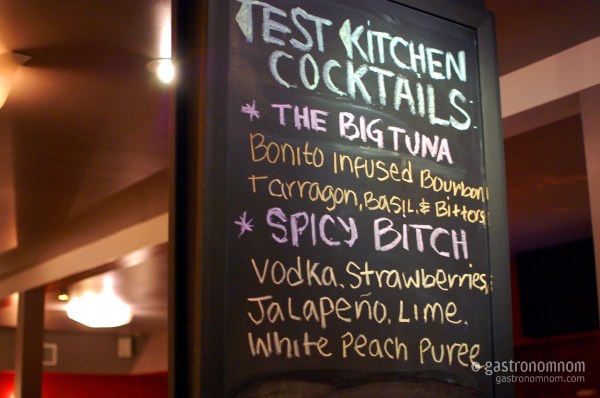 TEST KITCHEN
COCKTAILS
* THE BIG TUNA
Bonito Infused Bourbon,
Tarragon, Basil, & Bitters
* SPICY BITCH
Vodka, Strawberries,
JaLapeño, Lime,
White Peach Puree
© gastronomnom
gastronomnom.com